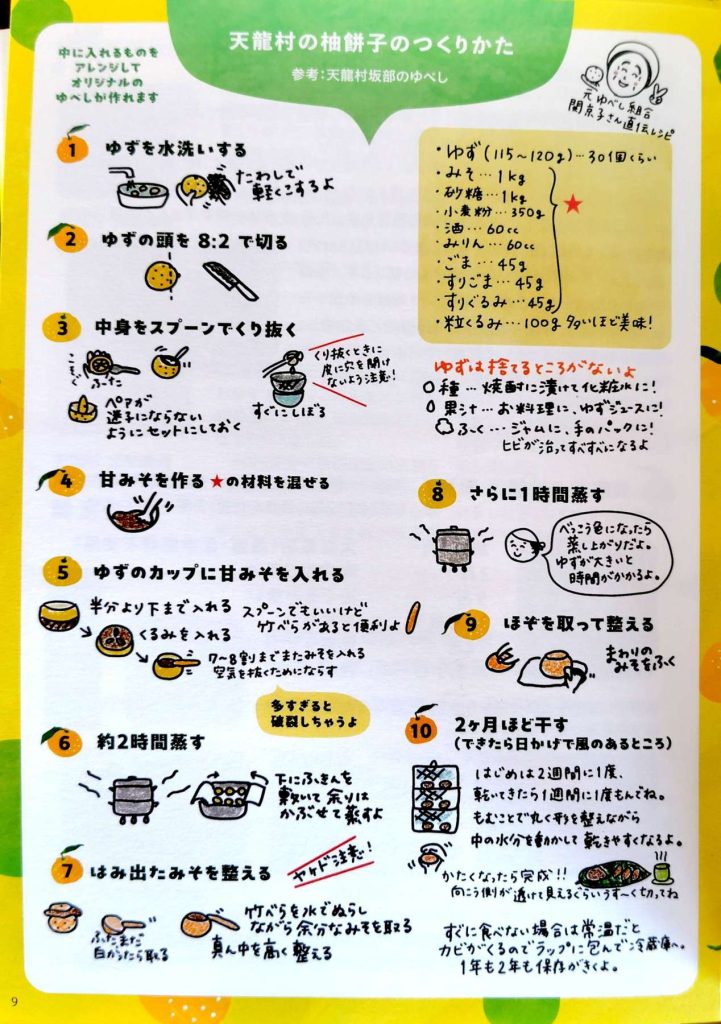 中に入れるものを
アレンジして
オリジナルの
ゆべしが作れます
天龍村の柚餅子のつくりかた
参考:天龍村坂部のゆべし
元ゆべし組合
関京子さん直伝レシピ
1 ゆずを水洗いする
たわしで
軽くこするよ
2 ゆずの頭を 8:2 で切る
3 中身をスプーンでくり抜く
こそぐ
ふった
ペアが
迷子にならない
ようにセットにしておく
すぐにしぼる
くり抜くときに
皮に穴を開け
ないよう注意!
4 甘みそを作る ★の材料を混ぜる
5 ゆずのカップに甘みそを入れる
半分より下まで入れる
くるみを入れる
7〜8割りまでまたみそを入れる
空気を抜くためにならす
スプーンでもいいけど
竹べらがあると便利よ
多すぎると
破裂しちゃうよ
6 約2時間蒸す
下にふきんを
敷いて余りは
かぶせて蒸すよ
7 はみ出たみそを整える
ヤケド注意!
ふたまだ
白かったら取る
竹べらを水でぬらし
ながら余分なみそを取る
真ん中を高く整える
・ゆず(115〜120g)…30個くらい
・みそ…1kg
・砂糖…1kg
・小麦粉…350g
・酒…60cc
・みりん…60cc
・ごま…45g
・すりごま…45g
・すりぐるみ…45g
★
・粒くるみ…100g 多いほど美味!
ゆずは捨てるところがないよ
種…焼酎に漬けて化粧水に!
果汁…お料理に、ゆずジュースに!
ふく…ジャムに、手のパックに!
ヒビが治ってすべすべになるよ
8 さらに1時間蒸す
べっこう色になったら
蒸し上がりだよ。
ゆずが大きいと
時間がかかるよ。
9 ほぞを取って整える
まわりの
みそをふく
10 2ヶ月ほど干す
(できたら日かげで風のあるところ)
はじめは2週間に1度、
乾いてきたら1週間に1度もんでね。
もむことで丸く形を整えながら
中の水分を動かして乾きやすくなるよ。
かたくなったら完成!!
向こう側が透けて見えるぐらいうす〜く切ってね
すぐに食べない場合は常温だと
カビがくるのでラップに包んで冷蔵庫へ。
1年も2年も保存がきくよ。
9